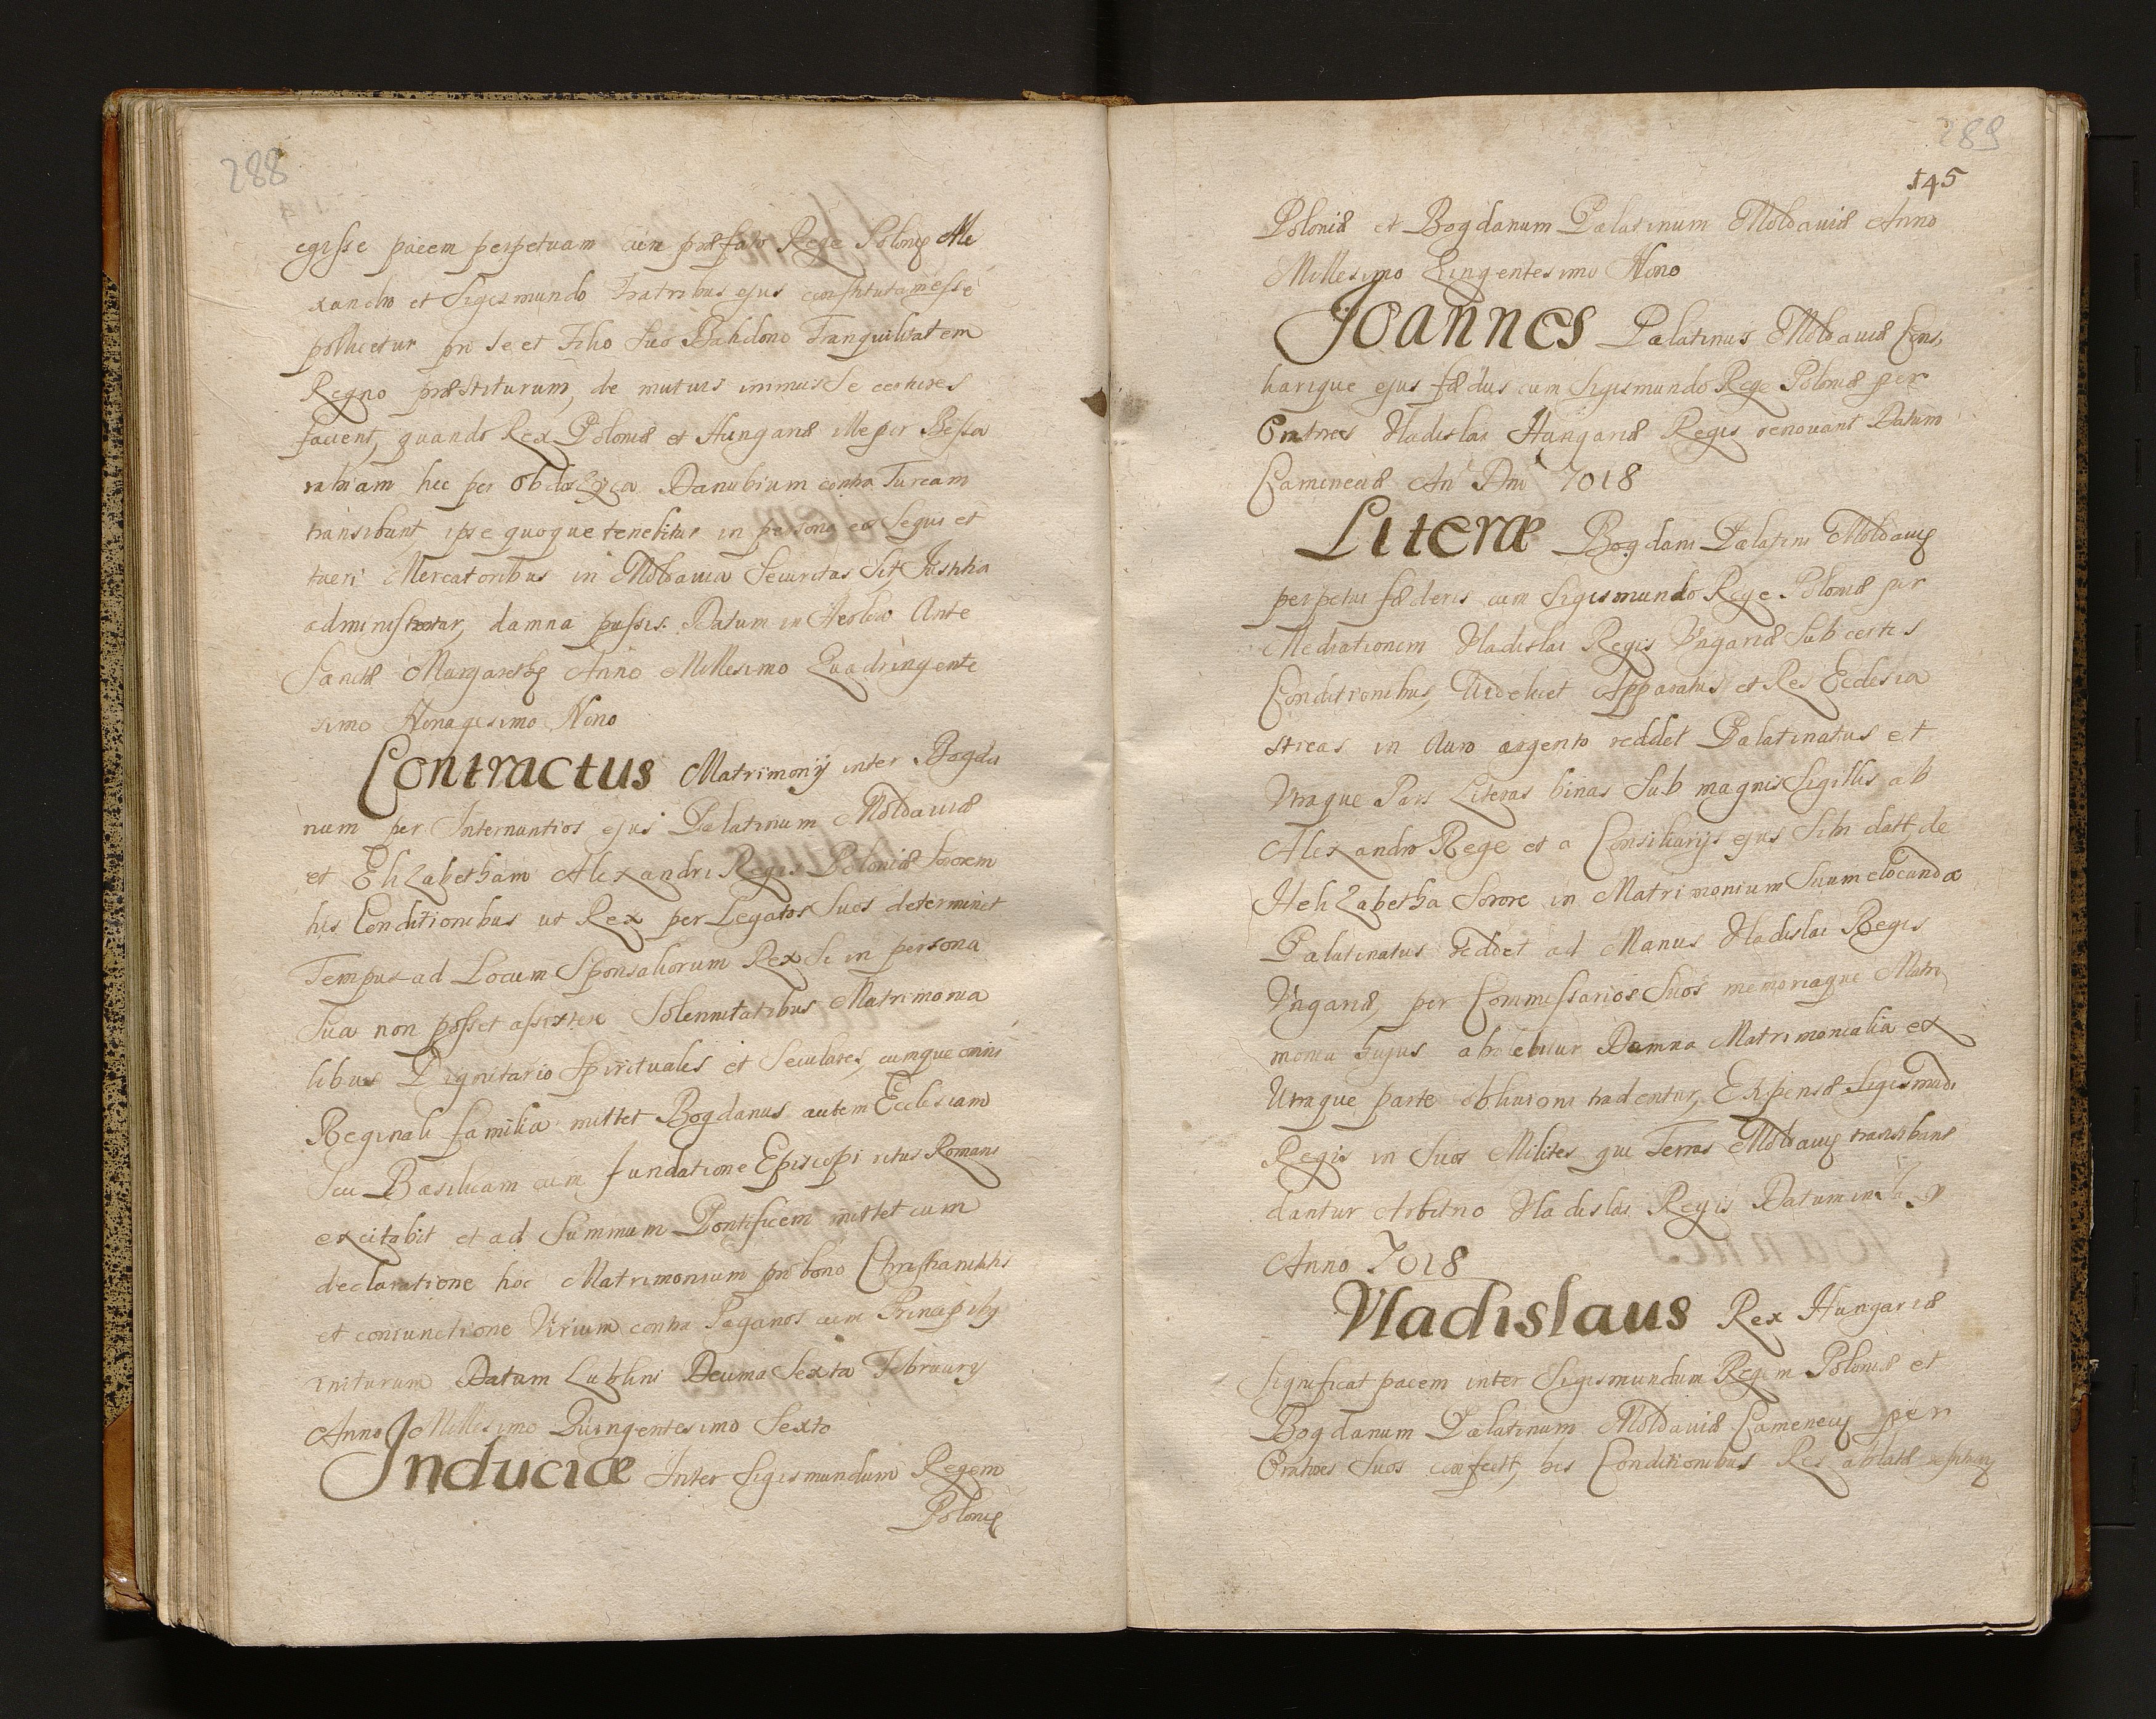 288
egisse pacem perpetuam cum præfato Rege Polonię Ale
xandro et Sigismundo Fratribus ejus constitutam esse
pollicetur pro se et Filio Suo Bohdano Tranquilitatem
Regno præstiturum, de mutuis inimus Se certiores
facient, quando Rex Poloniæ et Hungariæ ille per Bessa
rabiam hic per Danubium contra Turcam
transibunt, ipse quoque tenebitur in persona eos Sequi et
tueri Mercatoribus in Moldavia Securitas Sit, Justitia
administretur, damna passis. Datum in Ante
Sanctæ Margarethę Anno Millesimo Quadringente
simo Nonagesimo Nono
Contractus Matrimonij inter Bogda
num per Internuntios ejus Palatinum Moldaviæ
et Elizabetham Alexandri Regis Poloniæ Sororem
his Conditionibus ut Rex per Legatos Suos determinet
Tempus ad Locum Sponsaliorum Rex Si in persona
Sua non posset assistere Solennitatibus Matrimonia
libus Dignitario Spirituales et Seculares, cumque omni
Reginali familia mittet Bogdanus autem Ecclesiam
Seu Basilicam cum fundatione Episcopi ritus Romani
excitabit et ad Summum Pontificem mittet cum
declaratione hoc Matrimonium pro bono Christianitatis
et coniunctione Virium contra Paganos cum Principibꝫ
initurum Datum Lublini Decima Sexta Februarij
Anno Millesimo Quingentesimo Sexto
Induciæ Inter Sigismundum Regem
Polonię
289
145
Poloniæ et Bogdanum Palatinum Moldaviæ Anno
Millesimo Quingentesimo Nono
Joannes Palatinus Moldaviæ Consi
liarique ejus fædus cum Sigismundo Rege Poloniæ per
Oratores Vladislai Hungariæ Regis renovant Datum
Cameneciæ An Dni 7018
Literæ Bogdani Palatini Moldavię
perpetui fæderis cum Sigismundo Rege Poloniæ per
Mediationem Vladislai Regis Vngariæ Sub certis
Conditionibus, Videlicet Apparatus et Res Ecclesia
sticas in Auro argento reddet Palatinatus et
Vtraque Pars Literas binas Sub magnis Sigillis ab
Alexandro Rege et a Consiliarijs ejus Sibi datt de
Helizabetha Sorore in Matrimonium Suum elocanda
Palatinatus reddet ad Manus Vladislai Regis
Vngariæ, per Commissarios Suos memoriaque Matri
monia hujus abolebitur Damna Matrimonialia ex
Utraque parte oblivioni tradentur, Expensæ Sigismudi
Regis in Suos Milites qui Terras Moldavię transibant
dantur Arbitrio Vladislai Regis Datum in
Anno 7018
Vladislaus Rex Hungariæ
Significat pacem inter Sigismundum Regem Poloniæ et
Bogdanum Palatinum Moldaviæ Camenecię per
Oratores Suos confecit, his Conditionibus Res ablatæ